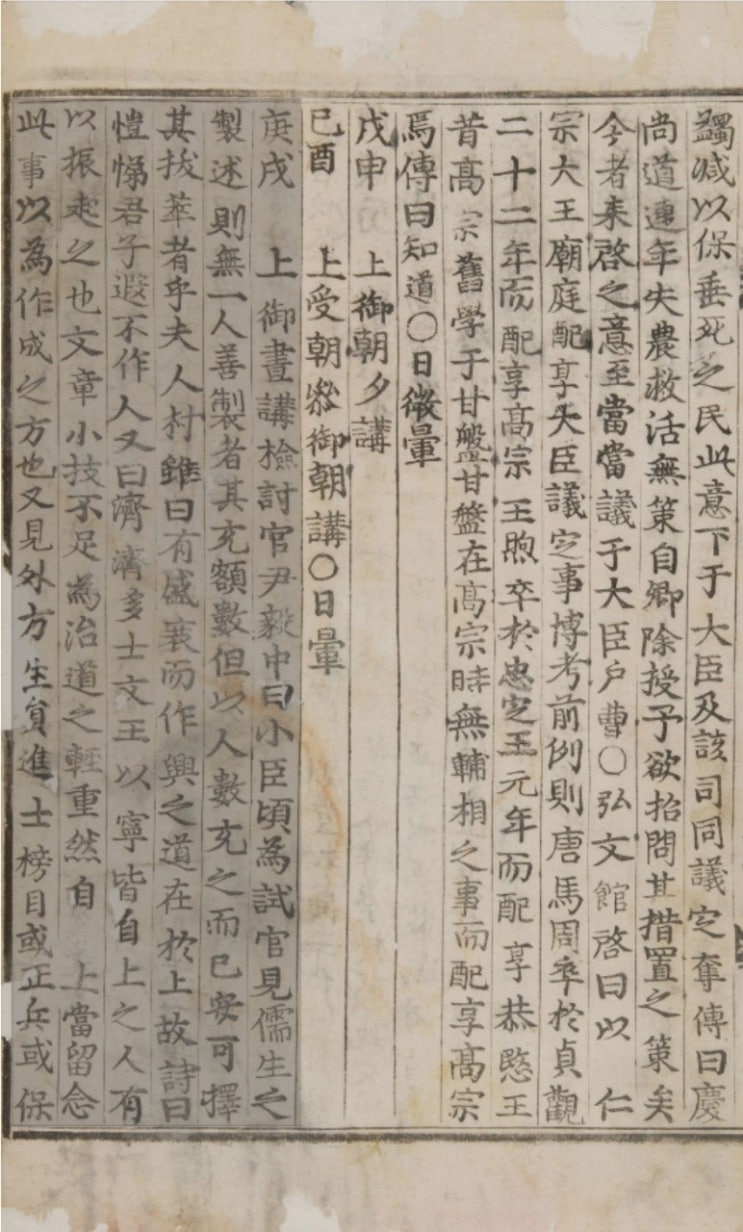 蠲减以保垂死之民此意下于大臣及該司同議定奪傳曰慶
尚道連年失農救活無策自卿除授予欲招問其措置之策矣
今者来啓之意至當當議于大臣户曹○弘文館啓曰以 仁
宗大王廟庭配享大臣議定事博考前例則唐馬周卒於貞觀
二十二年而配享高宗 王煦卒於忠定王元年而配享恭愍王
昔高宗舊學于甘盤甘盤在高宗時無輔相之事而配享高宗
焉傳曰知道○日微暈
戊申 上御朝夕講
己酉 上受朝叅御朝講○日暈
庚戌 上御晝講檢討官尹毅中曰小臣頃為試官見儒生之
製述則無一人善製者其充額數但以人數充之而已安可擇
其拔萃者乎夫人材雖曰有盛衰而作興之道在於上故詩曰
愷悌君子遐不作人又曰濟濟多士文王以寧皆自上之人有
以振起之也文章小技不足為治道之輕重然自 上當留念
此事以為作成之方也又見外方生負進士榜目或正兵或保